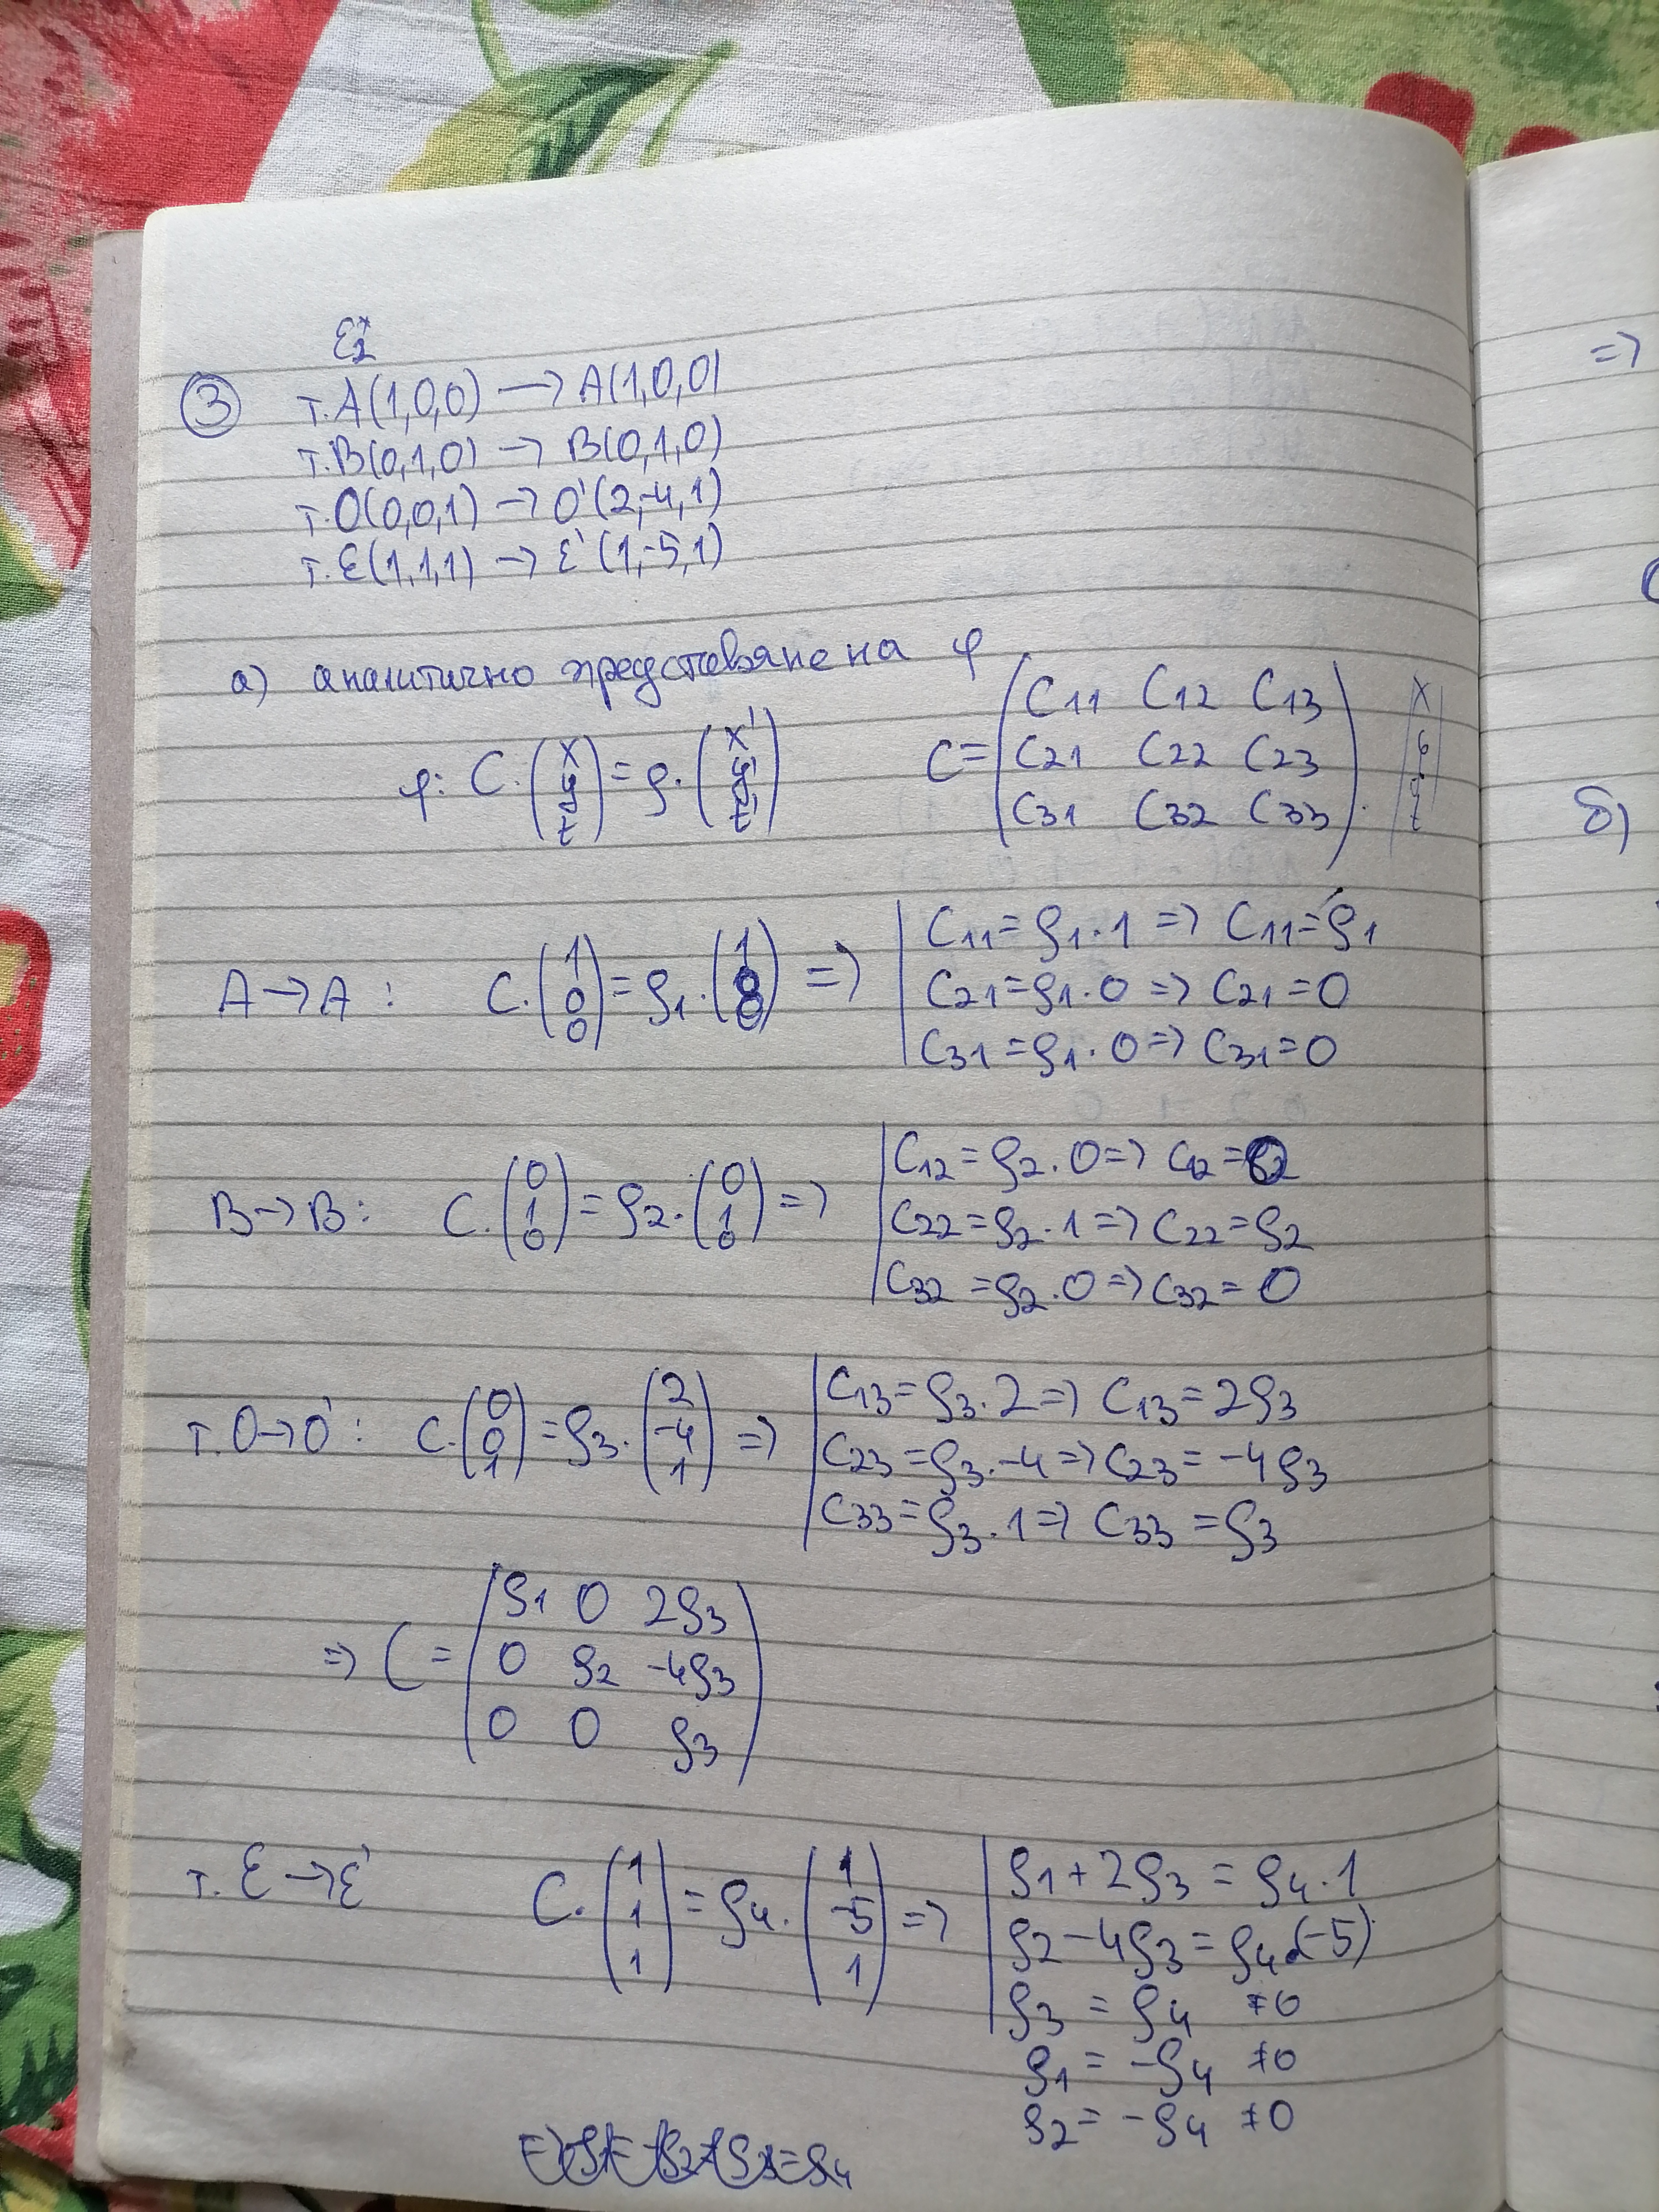 ε₂*
③ т. A(1,0,0) → A(1,0,0)
т. B(0,1,0) → B(0,1,0)
т. O(0,0,1) → O'(2,-4,1)
т. ε(1,1,1) → ε'(1,-5,1)
а) аналитично представяне на φ
φ: C.(x y t) = ρ.(x' y' t') C = (C11 C12 C13
C21 C22 C23
C31 C32 C33).
A → A : C.(1 0 0) = ρ1.(1 0 0) => | C11 = ρ1.1 => C11 = ρ1
C21 = ρ1.0 => C21 = 0
C31 = ρ1.0 => C31 = 0
B → B : C.(0 1 0) = ρ2.(0 1 0) => | C12 = ρ2.0 => C12 = 0
C22 = ρ2.1 => C22 = ρ2
C32 = ρ2.0 => C32 = 0
т. O → O' : C.(0 0 1) = ρ3.(2 -4 1) => | C13 = ρ3.2 => C13 = 2ρ3
C23 = ρ3.-4 => C23 = -4ρ3
C33 = ρ3.1 => C33 = ρ3
=> C = (ρ1 0 2ρ3
0 ρ2 -4ρ3
0 0 ρ3)
т. ε → ε' C.(1 1 1) = ρ4.(1 -5 1) => | ρ1 + 2ρ3 = ρ4.1
ρ2 - 4ρ3 = ρ4.(-5)
ρ3 = ρ4 ≠ 0
ρ1 = -ρ4 ≠ 0
ρ2 = -ρ4 ≠ 0
=>
б)